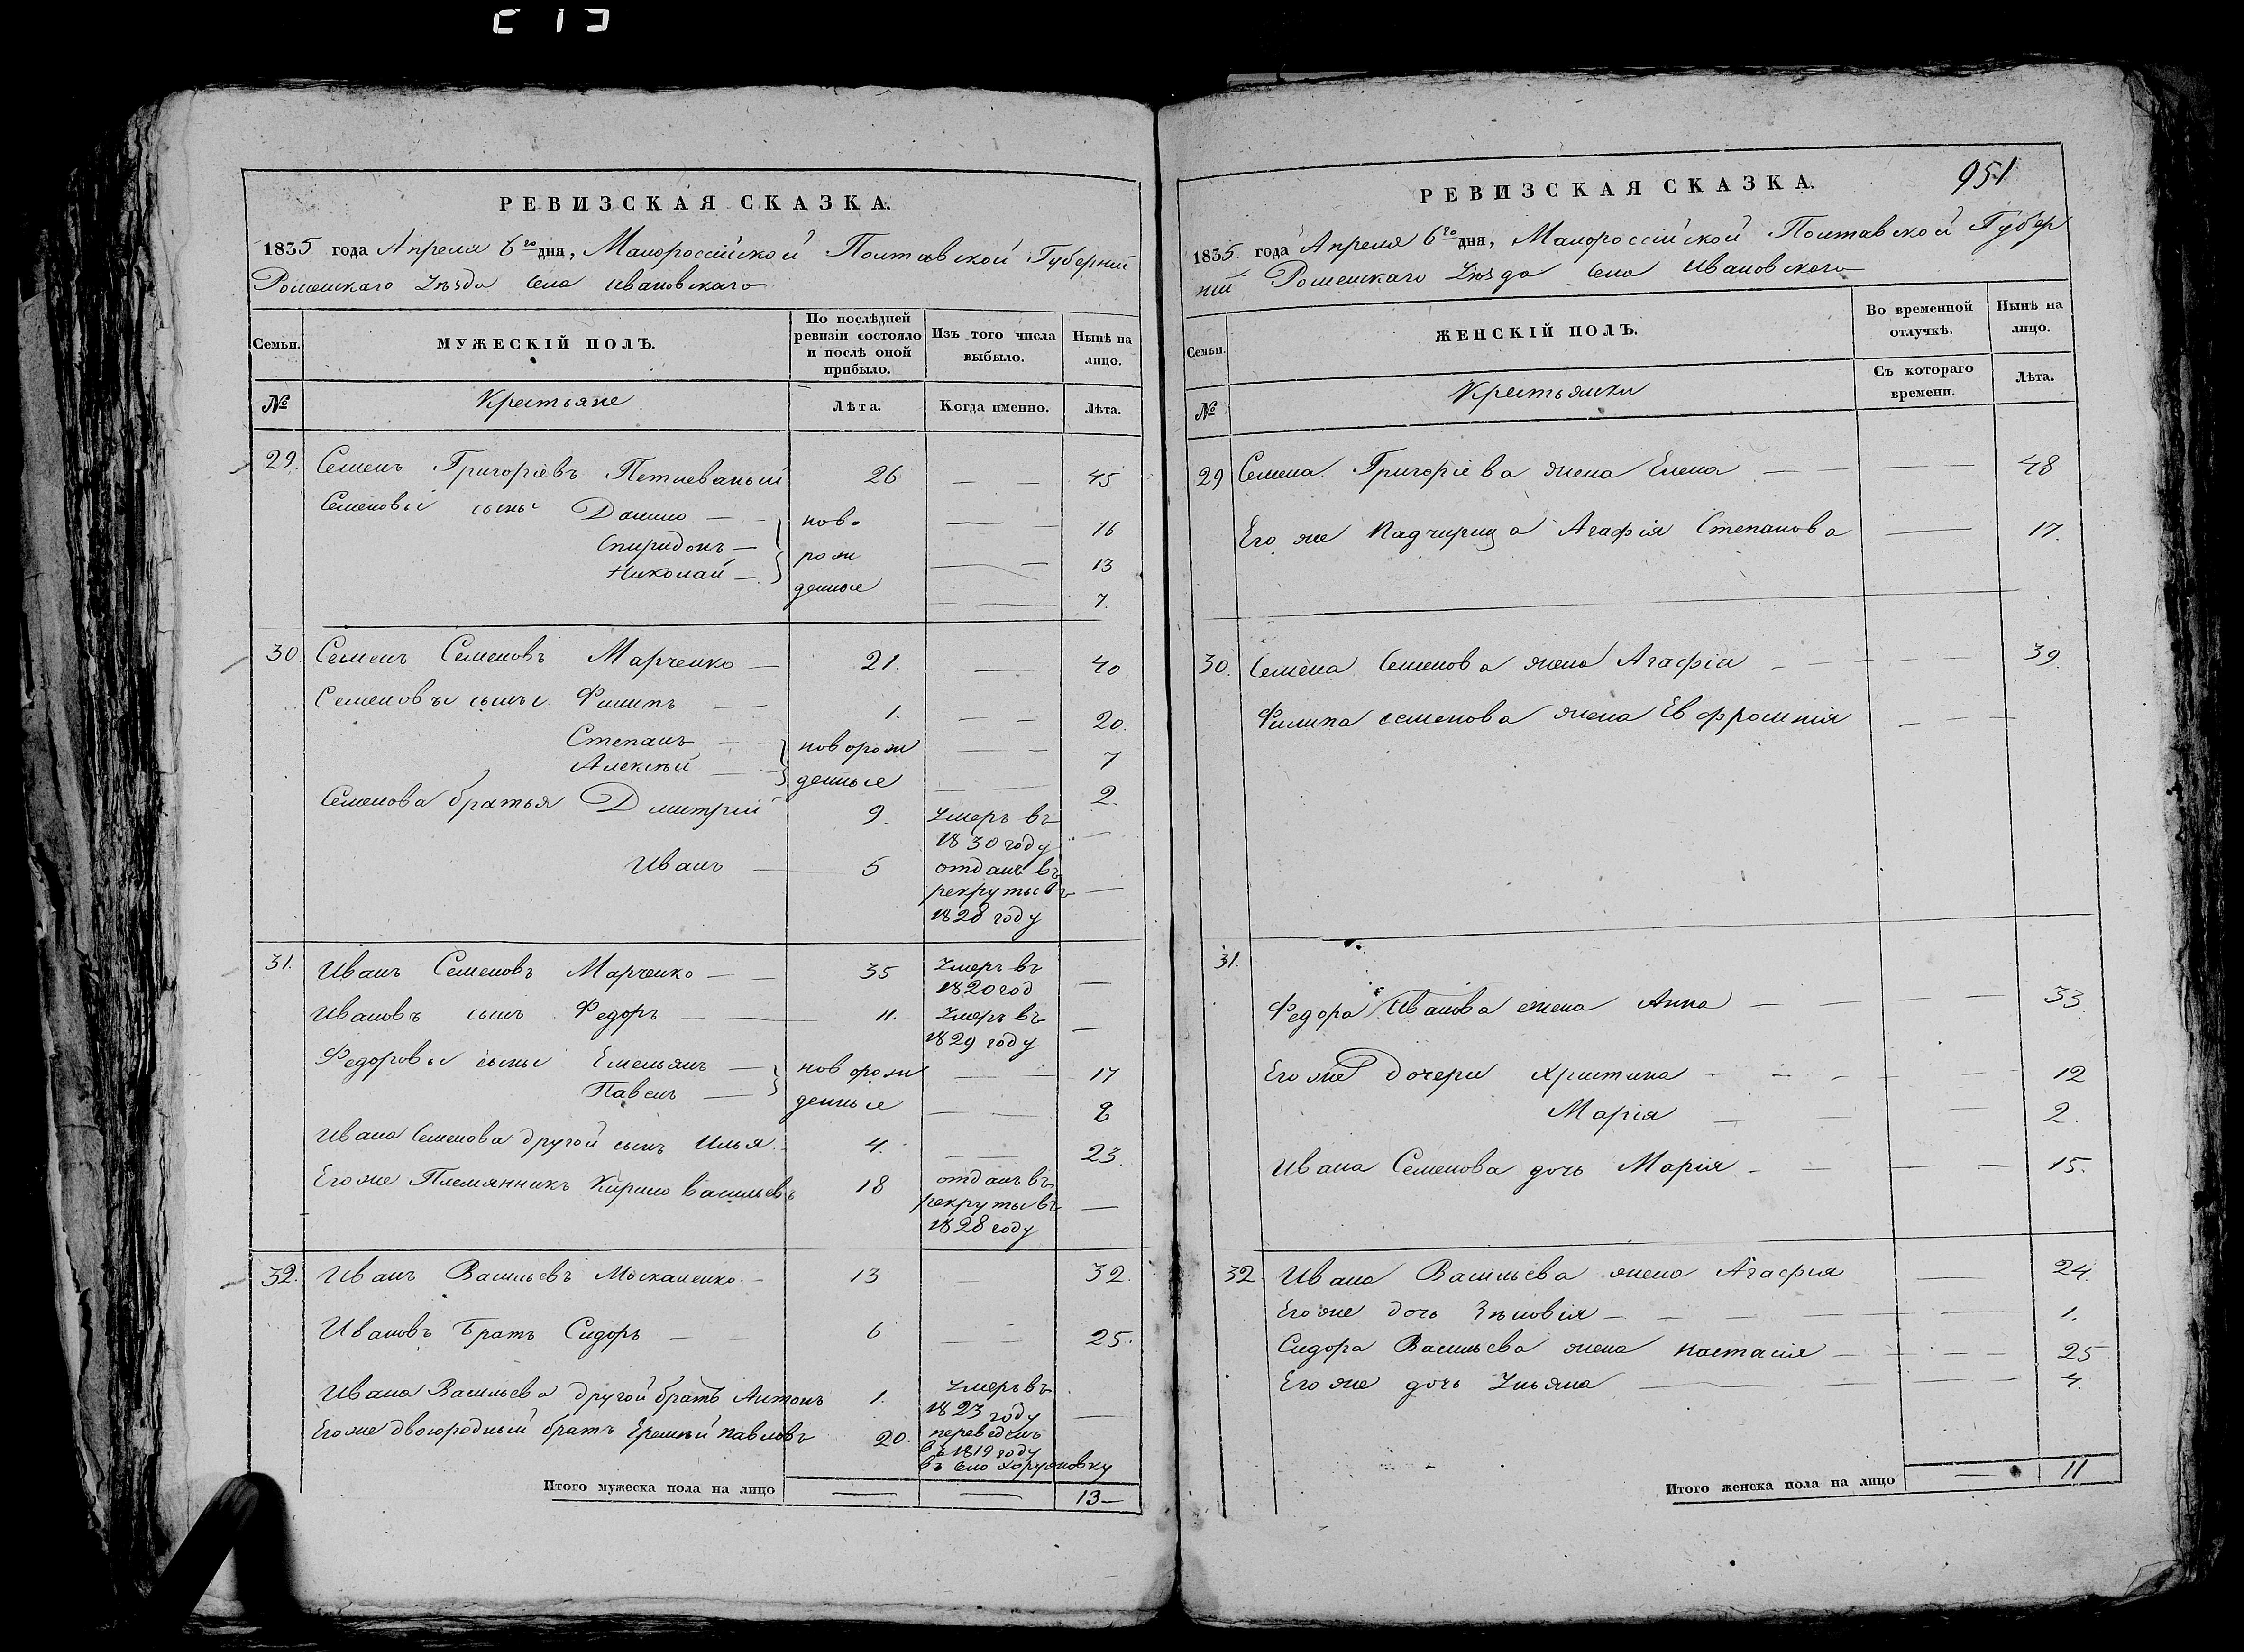 РЕВИЗСКАЯ СКАЗКА.
1835 года Апреля 6го дня, Малороссійской Полтавской Губерніи
Роменскаго Уѣзда села Ивановскаго
Семьи.
МУЖЕСКІЙ ПОЛЪ.
По послѣдней ревизіи состояло и послѣ оной прибыло.
Изъ того числа выбыло.
Нынѣ на лицо.
№
Крестьяне
Лѣта.
Когда именно.
Лѣта.
29. Семенъ Григорьевъ 26 — — 45
Семеновы сыны Данило — ново — — 16
Спиридонъ — рож — — 13
Николай — денные — — 7.
30. Семенъ Семеновъ Марченко — 21. — 40
Семеновы сыны Филипъ — — 1. — — 20.
Степанъ — — новорож — — 7
Алексѣй — — денные — — 2.
Семенова братья Дмитрій 9. Умеръ въ 1830 году —
Иванъ — 5 отданъ въ рекруты въ 1828 году —
31. Иванъ Семеновъ Марченко — — 35 Умеръ въ 1820 год —
Ивановъ сынъ Федоръ — — 11. Умеръ въ 1829 году —
Федоровы сыны Емельянъ — новорож — — 17
Павелъ — денные — — 8
Ивана Семенова другой сынъ Илья. 4. — — 23.
Его же Племянникъ Кирило Васильевъ 18 отданъ въ рекруты въ 1828 году —
32. Иванъ Васильевъ Москаленко — 13 — 32.
Ивановъ Братъ Сидоръ — — 6 — — 25.
Ивана Васильева другой братъ Антонъ 1. Умеръ въ 1823 году —
Его же двоюродный братъ Еремѣй Павловъ 20. переведенъ въ 1819 году въ село Хоружовку
Итого мужеска пола на лицо — — 13 —
951
РЕВИЗСКАЯ СКАЗКА.
1835. года Апреля 6го дня, Малороссійской Полтавской Губер
ніи Роменскаго Уѣзда села Ивановскаго
Семьи.
ЖЕНСКІЙ ПОЛЪ.
Во временной отлучкѣ.
Нынѣ на лицо.
№
Крестьянки
Съ котораго времени.
Лѣта.
29 Семена Григорьева жена Елена — — — 48
Его же Падчирица Агафія Степанова — 17.
30. Семена Семенова жена Агафія — — — — — 39.
Филипа Семенова жена Евфросинія — — —
31.
Федора Иванова жена Анна — — — — 33
Его же дочери Христина — — — — — 12
Марія — — — 2.
Ивана Семенова дочь Марія — — — — 15.
32. Ивана Васильева жена Агафія — 24.
Его же дочь Зѣновія — — — — — 1.
Сидора Васильева жена Настасія — — — — 25
Его же дочь Ульяна — — — — 4.
Итого женска пола на лицо — 11